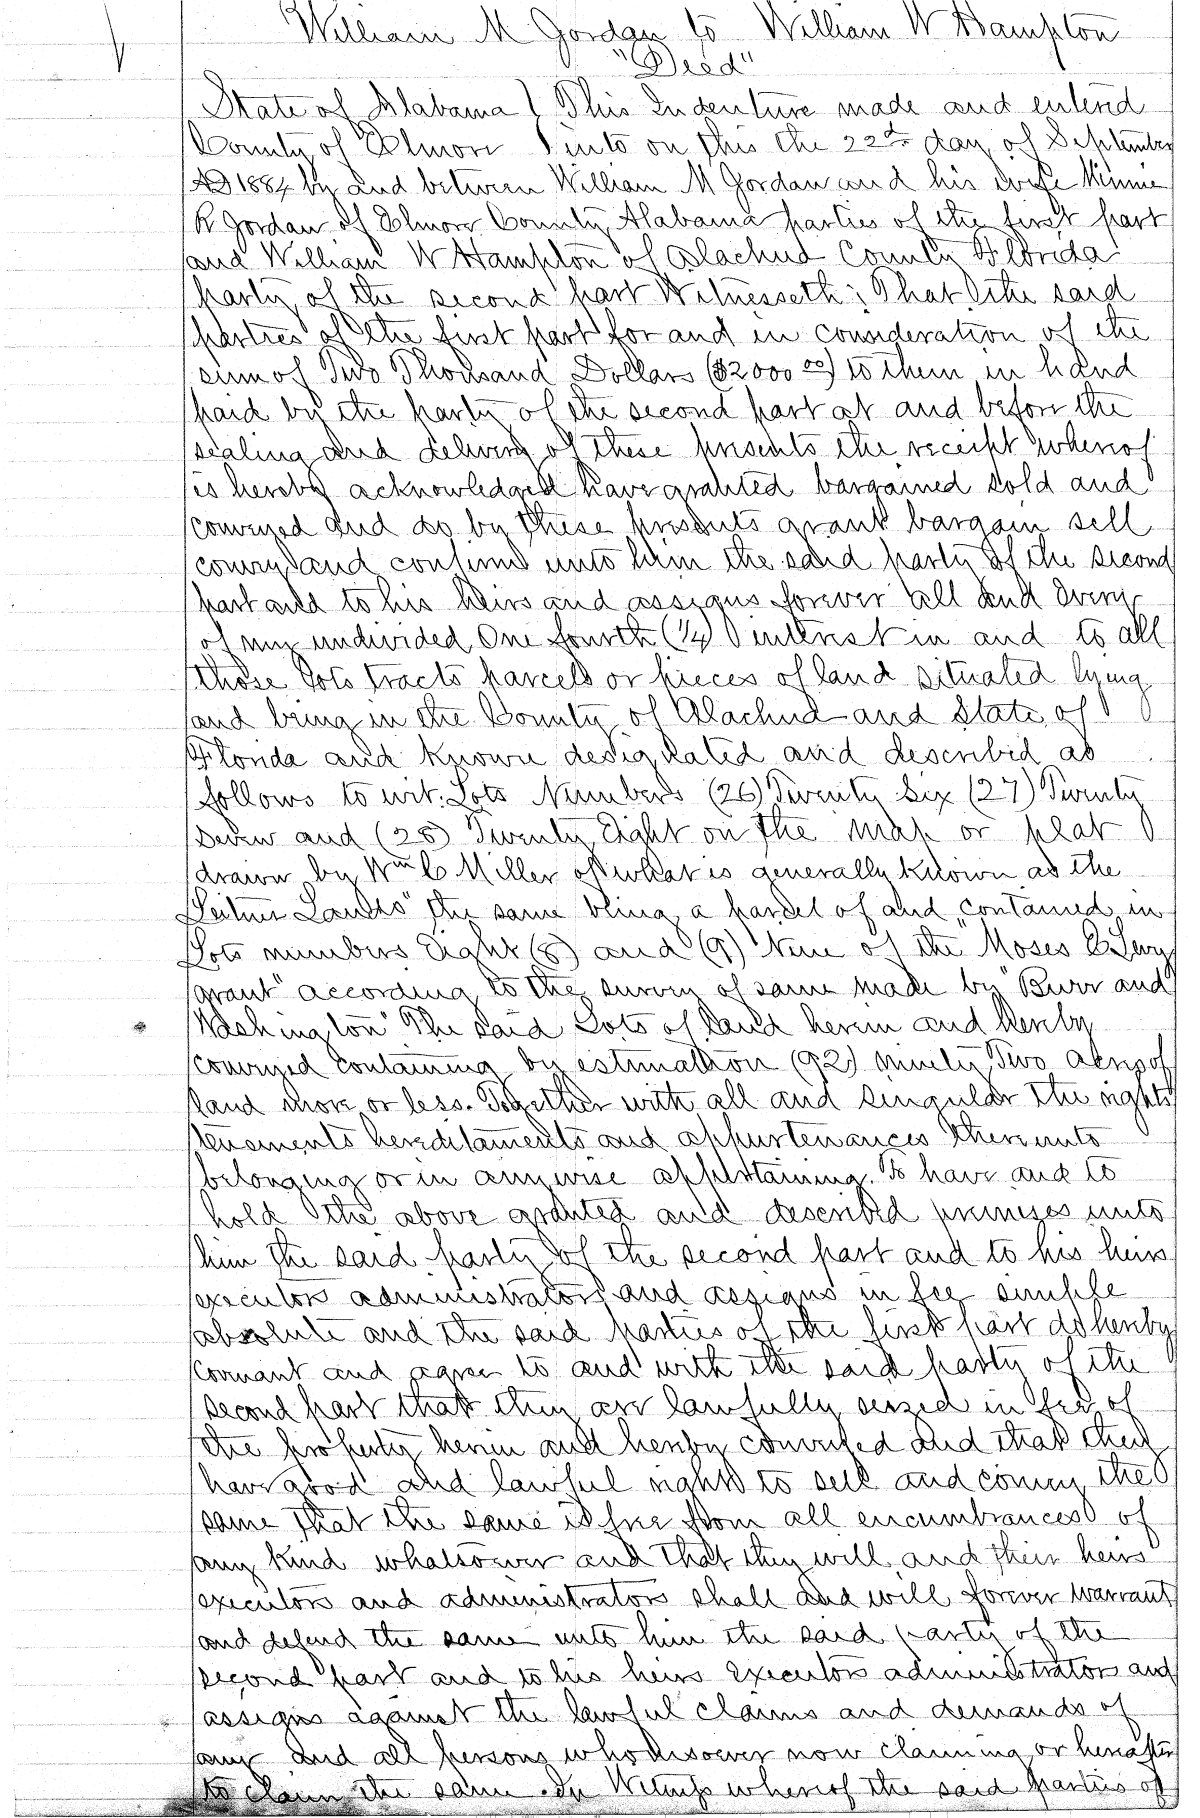 William M Jordan to William W Hampton
"Deed"
State of Alabama } This Indenture made and entered
County of Elmore } into on this the 22nd day of September
AD 1884 by and between William M Jordan and his wife Minnie
R Jordan of Elmore County Alabama parties of the first part
and William W Hampton of Alachua County Florida
party of the second part Witnesseth; That the said
parties of the first part for and in consideration of the
sum of Two Thousand Dollars ($2000 00) to them in hand
paid by the party of the second part at and before the
sealing and delivery of these presents the receipt whereof
is hereby acknowledged have granted bargained sold and
conveyed and do by these presents grant bargain sell
convey and confirm unto him the said party of the second
part and to his heirs and assigns forever all and every
of my undivided One fourth (1/4) interest in and to all
those lots tracts parcels or pieces of land situated lying
and being in the County of Alachua and State of
Florida and known designated and described as
follows to wit. Lots Numbers (26) Twenty Six (27) Twenty
Seven and (28) Twenty Eight on the map or plat
drawn by Wm C Miller of what is generally known as the
Leitner Lands" the same being a parcel of and contained in
Lots numbers Eight (8) and (9) Nine of the "Moses E Levy
grant" according to the survey of same made by "Burr and
Washington" The said Lots of land herein and hereby
conveyed containing by estimation (92) ninety Two acres of
land more or less. Together with all and singular the rights
tenements hereditaments and appurtenances thereunto
belonging or in anywise appertaining. To have and to
hold the above granted and described premises unto
him the said party of the second part and to his heirs
executors administrators and assigns in fee simple
absolute and the said parties of the first part do hereby
covenant and agree to and with the said party of the
second part that they are lawfully seized in fee of
the property herein and hereby conveyed and that they
have good and lawful right to sell and convey the
same that the same is free from all encumbrances of
any kind whatsoever and that they will and their heirs
executors and administrators shall and will forever warrant
and defend the same unto him the said party of the
second part and to his heirs executors administrators and
assigns against the lawful claims and demands of
any and all persons whomsoever now claiming or hereafter
to claim the same. In Witness whereof the said parties of